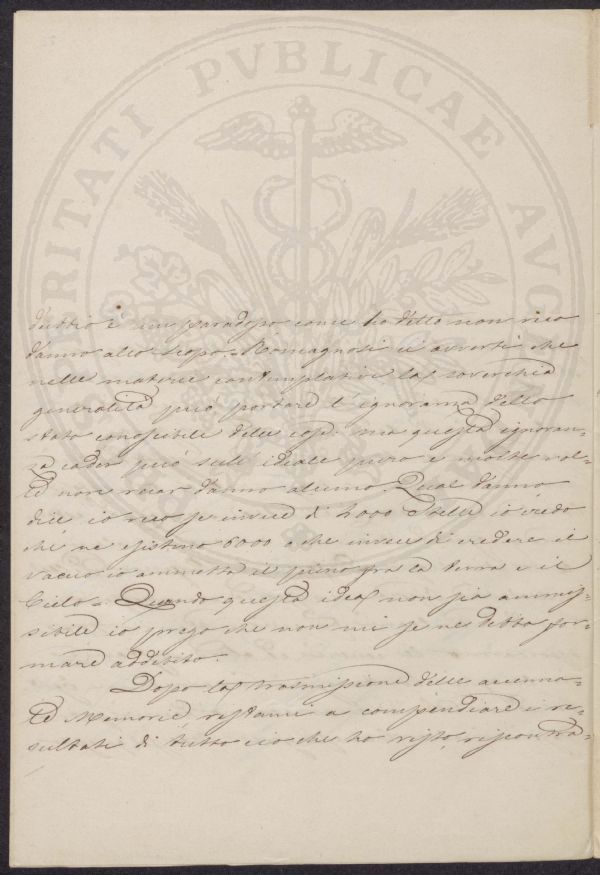 PROSPERITATI PVBLICAE AVGENDAE
dubbio è un paradosso come ho detto non reco
danno allo scopo. Romagnosi ci avvertì che
nelle materie contemplative la soverchia
generalità può portare l'ignoranza dello
stato conoscibile delle cose: ma questa ignoran-
za cader può sull'ideale puro e molte vol-
te non recar danno alcuno. Qual danno
dice io reco se invece di 2000 Stelle io credo
che ne esistino 6000 o che invece di credere il
vacuo io ammetta il pieno fra la terra e il
Cielo. Quando questa idea non sia ammis-
sibile io prego che non mi se ne debba for-
mare addebito.
Dopo la trasmissione delle accenna-
te Memorie, restami a compendiare i re-
sultati di tutto ciò che ho visto, riscontra-